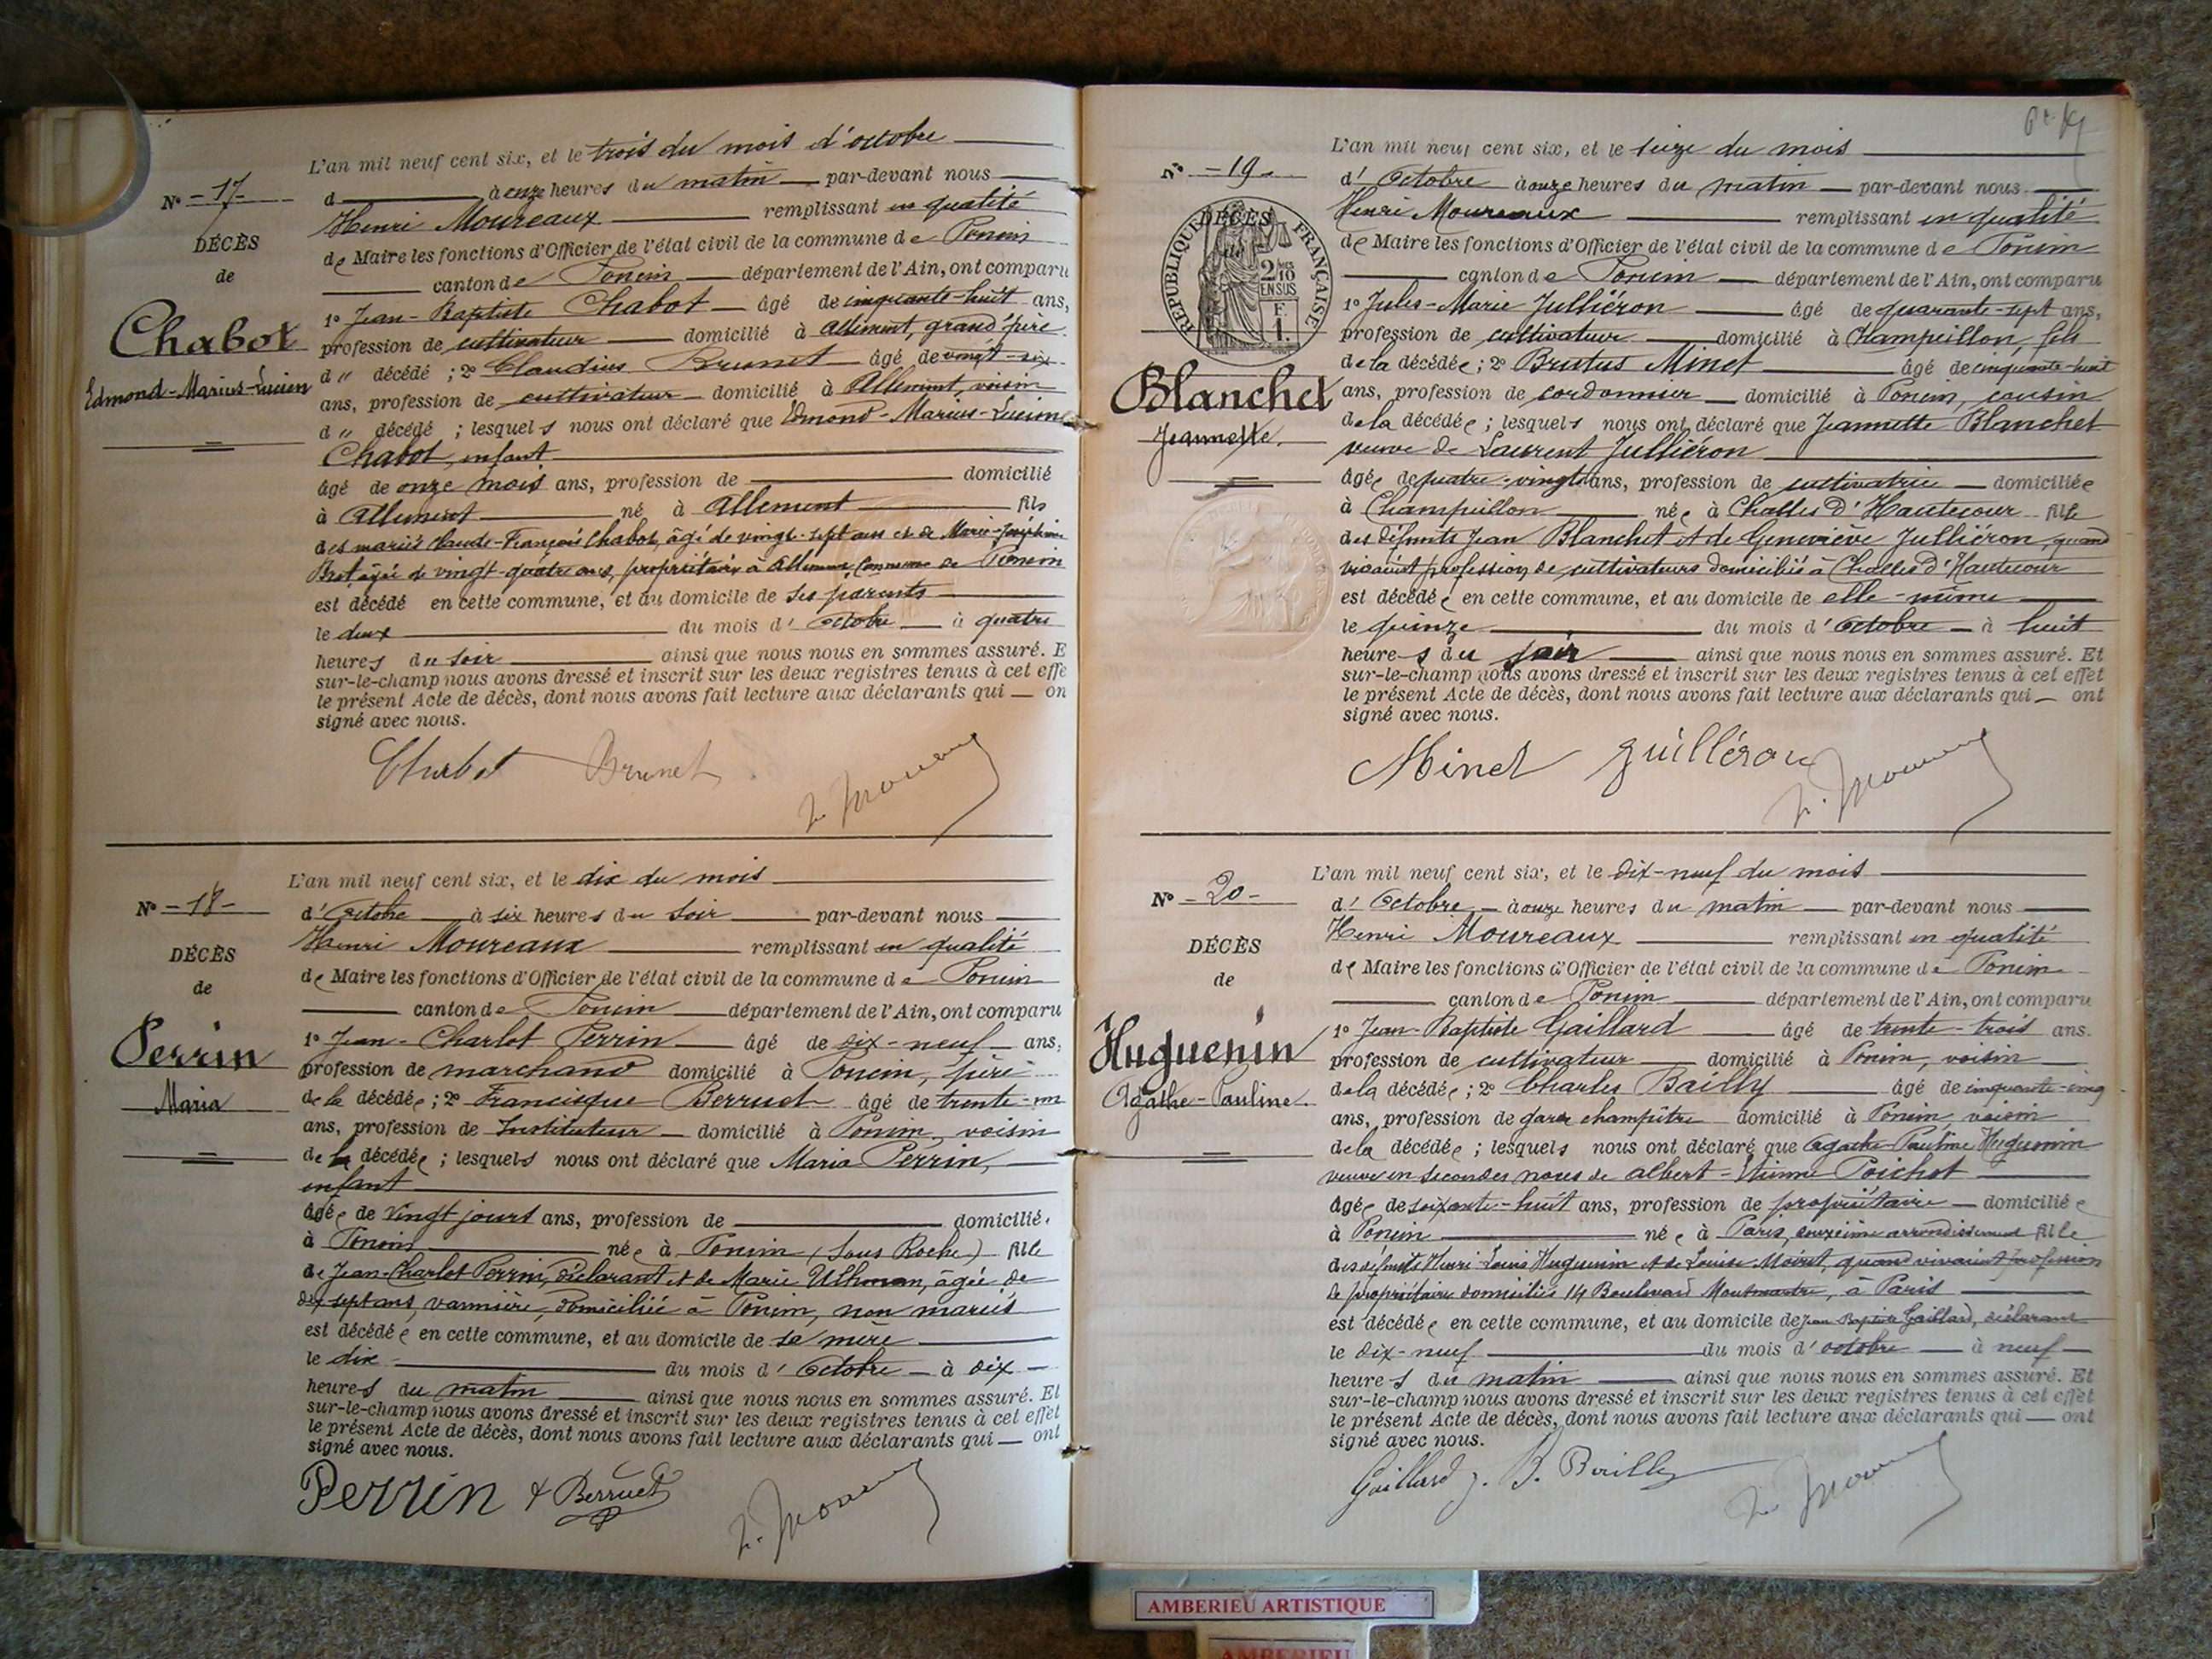 N° - 17 -
DÉCÈS
de
Chabot
Edmond-Marius-Lucien
L'an mil neuf cent six, et le trois du mois d'octobre
d à onze heures du matin par-devant nous
Henri Moureaux remplissant en qualité
de Maire les fonctions d'Officier de l'état civil de la commune de Poncin
canton de Poncin département de l'Ain, ont comparu
1° Jean-Baptiste Chabot âgé de cinquante-huit ans,
profession de cultivateur domicilié à Allement, grand'père
d" décédé ; 2° Claudius Brunet âgé de vingt-six
ans, profession de cultivateur domicilié à Allement, voisin
d" décédé ; lesquels nous ont déclaré que Edmond-Marius-Lucien
Chabot, enfant
âgé de onze mois ans, profession de domicilié
à Allement né à Allement fils
des mariés Claude-François Chabot, âgé de vingt-sept ans et de Marie-Joséphine
âgée de vingt-quatre ans, propriétaires à Allement, commune de Poncin
est décédé en cette commune, et au domicile de ses parents
le deux du mois d'Octobre à quatre
heures du soir ainsi que nous nous en sommes assuré. E
sur-le-champ nous avons dressé et inscrit sur les deux registres tenus à cet effe
le présent Acte de décès, dont nous avons fait lecture aux déclarants qui on
signé avec nous.
Chabot Brunet
N° - 18 -
DÉCÈS
de
Perrin
Maria
L'an mil neuf cent six, et le dix du mois
d'Octobre à six heures du soir par-devant nous
Henri Moureaux remplissant en qualité
de Maire les fonctions d'Officier de l'état civil de la commune de Poncin
canton de Poncin département de l'Ain, ont comparu
1° Jean-Charlot Perrin âgé de dix-neuf ans,
profession de marchand domicilié à Poncin, père
de la décédée ; 2° Francisque Berruet âgé de trente-un
ans, profession de Instituteur domicilié à Poncin, voisin
de la décédée ; lesquels nous ont déclaré que Maria Perrin,
enfant
âgée de vingt jours ans, profession de domicilié
à Poncin née à Poncin (sous Roche) fille
de Jean-Charlot Perrin, déclarant et de Marie Ulhman, âgée de
dix sept ans, vannière, domiciliée à Poncin, non mariés
est décédée en cette commune, et au domicile de sa mère
le dix du mois d'Octobre à dix
heures du matin ainsi que nous nous en sommes assuré. Et
sur-le-champ nous avons dressé et inscrit sur les deux registres tenus à cet effet
le présent Acte de décès, dont nous avons fait lecture aux déclarants qui ont
signé avec nous.
Perrin Berruet
N° - 19 -
RÉPUBLIQUE FRANÇAISE
DÉCÈS
de
2/10
EN SUS
F.
1.
Blanchet
Jeannette
L'an mil neuf cent six, et le seize du mois
d'Octobre à onze heures du matin par-devant nous
Henri Moureaux remplissant en qualité
de Maire les fonctions d'Officier de l'état civil de la commune de Poncin
canton de Poncin département de l'Ain, ont comparu
1° Jules-Marie Julliéron âgé de quarante-sept ans,
profession de cultivateur domicilié à Champeillon, fils
de la décédée ; 2° Brutus Minet âgé de cinquante-huit
ans, profession de cordonnier domicilié à Poncin, cousin
de la décédée ; lesquels nous ont déclaré que Jeannette Blanchet
veuve de Laurent Julliéron
âgée de quatre-vingts ans, profession de cultivatrice domiciliée
à Champeillon née à Challes d'Hautecour fille
des défunts Jean Blanchet et de Geneviève Julliéron, quand
vivaient profession de cultivateurs domiciliés à Challes d'Hautecour
est décédée en cette commune, et au domicile de elle-même
le quinze du mois d'Octobre à huit
heures du soir ainsi que nous nous en sommes assuré. Et
sur-le-champ nous avons dressé et inscrit sur les deux registres tenus à cet effet
le présent Acte de décès, dont nous avons fait lecture aux déclarants qui ont
signé avec nous.
Minet Juilléron
N° - 20 -
DÉCÈS
de
Huguenin
Agathe-Pauline
L'an mil neuf cent six, et le dix-neuf du mois
d'Octobre à onze heures du matin par-devant nous
Henri Moureaux remplissant en qualité
de Maire les fonctions d'Officier de l'état civil de la commune de Poncin
canton de Poncin département de l'Ain, ont comparu
1° Jean-Baptiste Gaillard âgé de trente-trois ans.
profession de cultivateur domicilié à Poncin, voisin
de la décédée ; 2° Charles Bailly âgé de cinquante-cinq
ans, profession de garde champêtre domicilié à Poncin, voisin
de la décédée ; lesquels nous ont déclaré que Agathe-Pauline Huguenin
veuve en secondes noces de Albert-Etienne Poichot
âgée de soixante-huit ans, profession de propriétaire domiciliée
à Poncin née à Paris, deuxième arrondissement fille
des défunts Henri-Louis Huguenin et de Louise quand vivaient profession
de propriétaire domiciliés 14 Boulevard Montmartre, à Paris
est décédée en cette commune, et au domicile de Jean Baptiste Gaillard, déclarant
le dix-neuf du mois d'octobre à neuf
heures du matin ainsi que nous nous en sommes assuré. Et
sur-le-champ nous avons dressé et inscrit sur les deux registres tenus à cet effet
le présent Acte de décès, dont nous avons fait lecture aux déclarants qui ont
signé avec nous.
Gaillard J. B. Bailly
AMBERIEU ARTISTIQUE
AMBERIEU